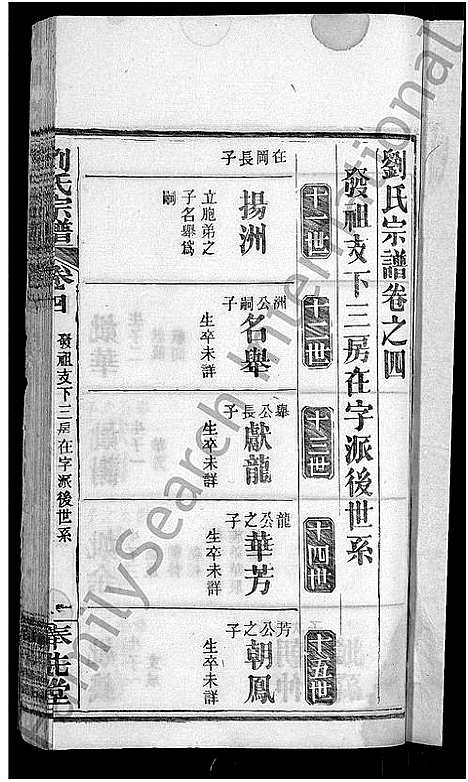 劉氏宗譜卷之四
發祖支下三房在字派後世系
十一世
十二世
十三世
十四世
十五世
在岡長子
揚洲
立胞弟之
子名舉爲
嗣
洲公嗣子
名舉
生卒未詳
舉公長子
獻龍
生卒未詳
龍公之子
華芳
生卒未詳
芳公之子
朝鳳
生卒未詳
劉氏宗譜
卷四
發祖支下三房在字派後世系
一
奉先堂
FamilySearch International